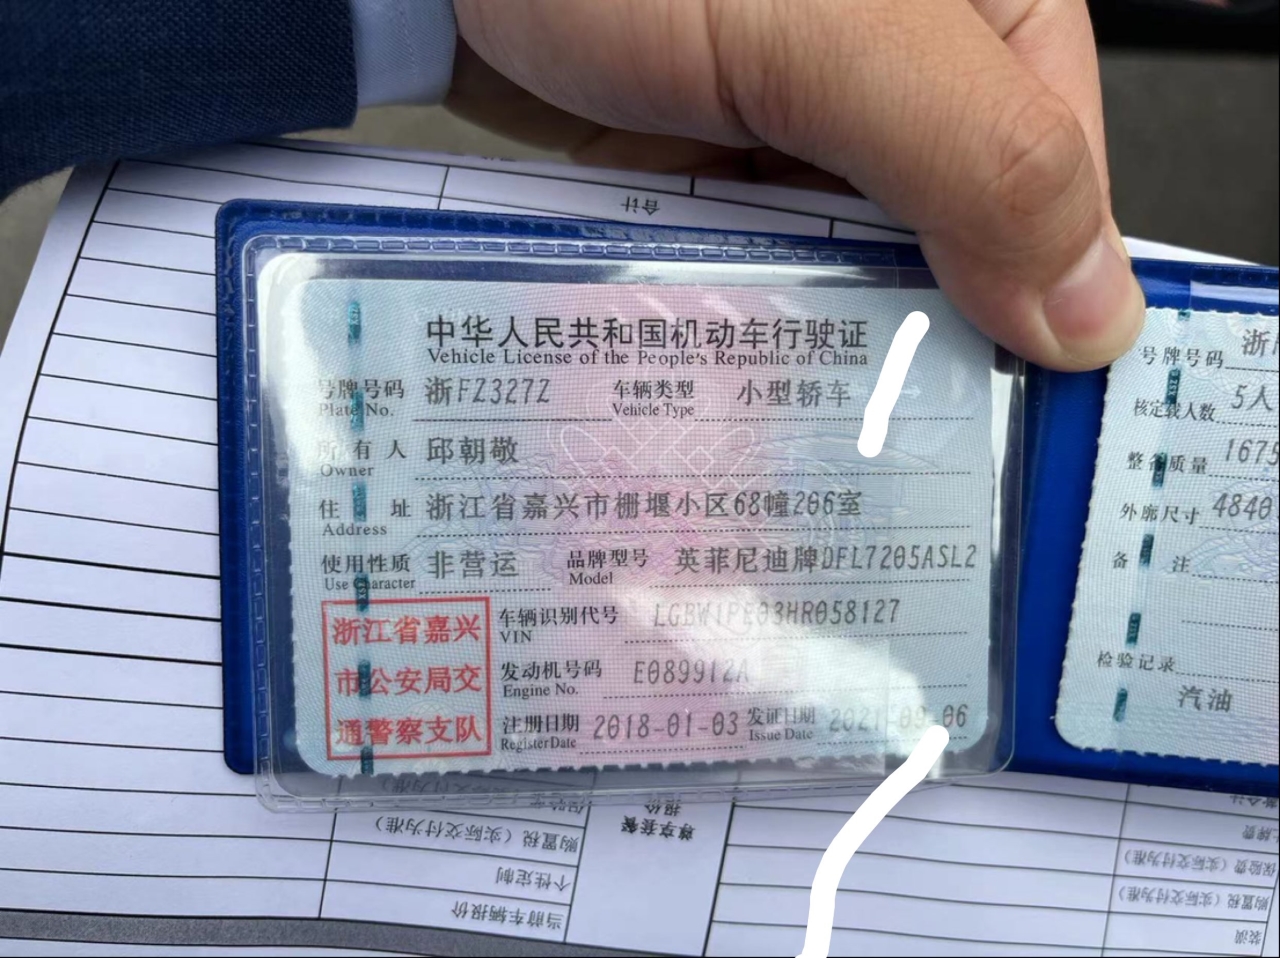 合计
中华人民共和国机动车行驶证
Vehicle License of the People's Republic of China
号牌号码 浙FZ327Z 车辆类型 小型轿车
Plate No. Vehicle Type
所有人 邱朝敬
Owner
住址 浙江省嘉兴市栅堰小区68幢206室
Address
使用性质 非营运 品牌型号 英菲尼迪牌DFL7205ASL2
Use Character Model
浙江省嘉兴
市公安局交
通警察支队
车辆识别代号 LGBW1PE03HR058127
VIN
发动机号码 E089912A
Engine No.
注册日期 2018-01-03 发证日期 2021-09-06
Register Date Issue Date
号牌号码 浙
核定载人数 5人
整备质量 1675
外廓尺寸 4840
备注
检验记录
汽油
报价
尊享套餐
购置税（实际交付为准）
个性定制
当前车辆报价
保险费（实际交付为准）
购置税（实际交付为准）
装潢